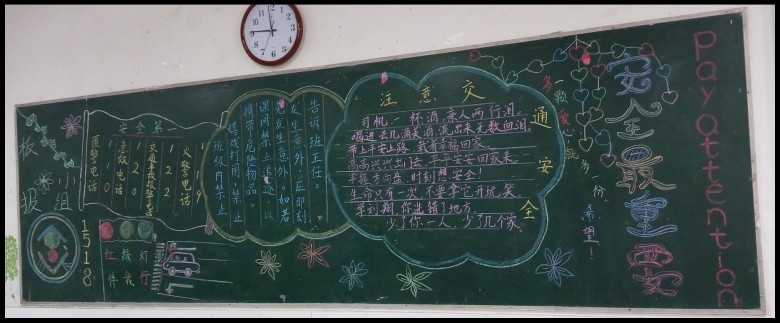 Pay attention
安全最重要
多一份爱心就多一份希望！
注意交通安全
司机一杯酒,亲人两行泪。
喝进去几滴美酒,流出来无数血泪。
带上平安上路,载着幸福回家。
高高兴兴出门去,平平安安回家来。
手握方向盘,时刻想安全!
生命只有一次,不要拿它开玩笑。
少了你一人,少了几个家
告诉班主任。
发生意外,应即刻
免发生意外。如若
课间禁止追逐,以
携带危险物品。
嬉戏打闹。禁止
班级内禁止
安全第一
火警电话
119
交通事故报警电话
122
急救电话
120
匪警电话
110
板报小组
1518
红绿灯
停我行
12 11 10 9 8 7 6 5 4 3 2 1